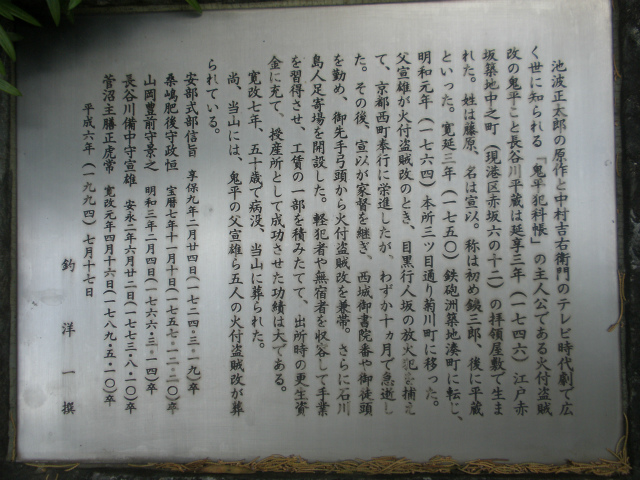 池波正太郎の原作と中村吉右衛門のテレビ時代劇で広
く世に知られる「鬼平犯科帳」の主人公である火付盗賊
改の鬼平こと長谷川平蔵は延享三年（一七四六）江戸赤
坂築地中之町（現港区赤坂六の十二）の拝領屋敷で生ま
れた。姓は藤原、名は宣以。称は初め銕三郎、後に平蔵
といった。寛延三年（一七五〇）鉄砲洲築地湊町に転じ、
明和元年（一七六四）本所三ツ目通り菊川町に移った。
父宣雄が火付盗賊改のとき、目黒行人坂の放火犯を捕え
て、京都西町奉行に栄進したが、わずか十ヵ月で急逝し
た。その後、宣以が家督を継ぎ、西城御書院番や御徒頭
を勤め、御先手弓頭から火付盗賊改を兼帯。さらに石川
島人足寄場を開設した。軽犯者や無宿者を収容して手業
を習得させ、工賃の一部を積みたてて、出所時の更生資
金に充て、授産所として成功させた功績は大である。
寛政七年、五十歳で病没、当山に葬られた。
尚、当山には、鬼平の父宣雄ら五人の火付盗賊改が葬
られている。
安部式部信旨　享保九年二月廿四日（一七二四・三・一九）卒
桑嶋肥後守政恒　宝暦七年十一月十日（一七五七・一二・二〇）卒
山岡豊前守景之　明和三年二月四日（一七六六・三・一四）卒
長谷川備中守宣雄　安永二年六月廿二日（一七七三・八・一〇）卒
菅沼主膳正虎常　寛政元年四月十六日（一七八九・五・一〇）卒
平成六年（一九九四）七月十七日
釣　洋一　撰